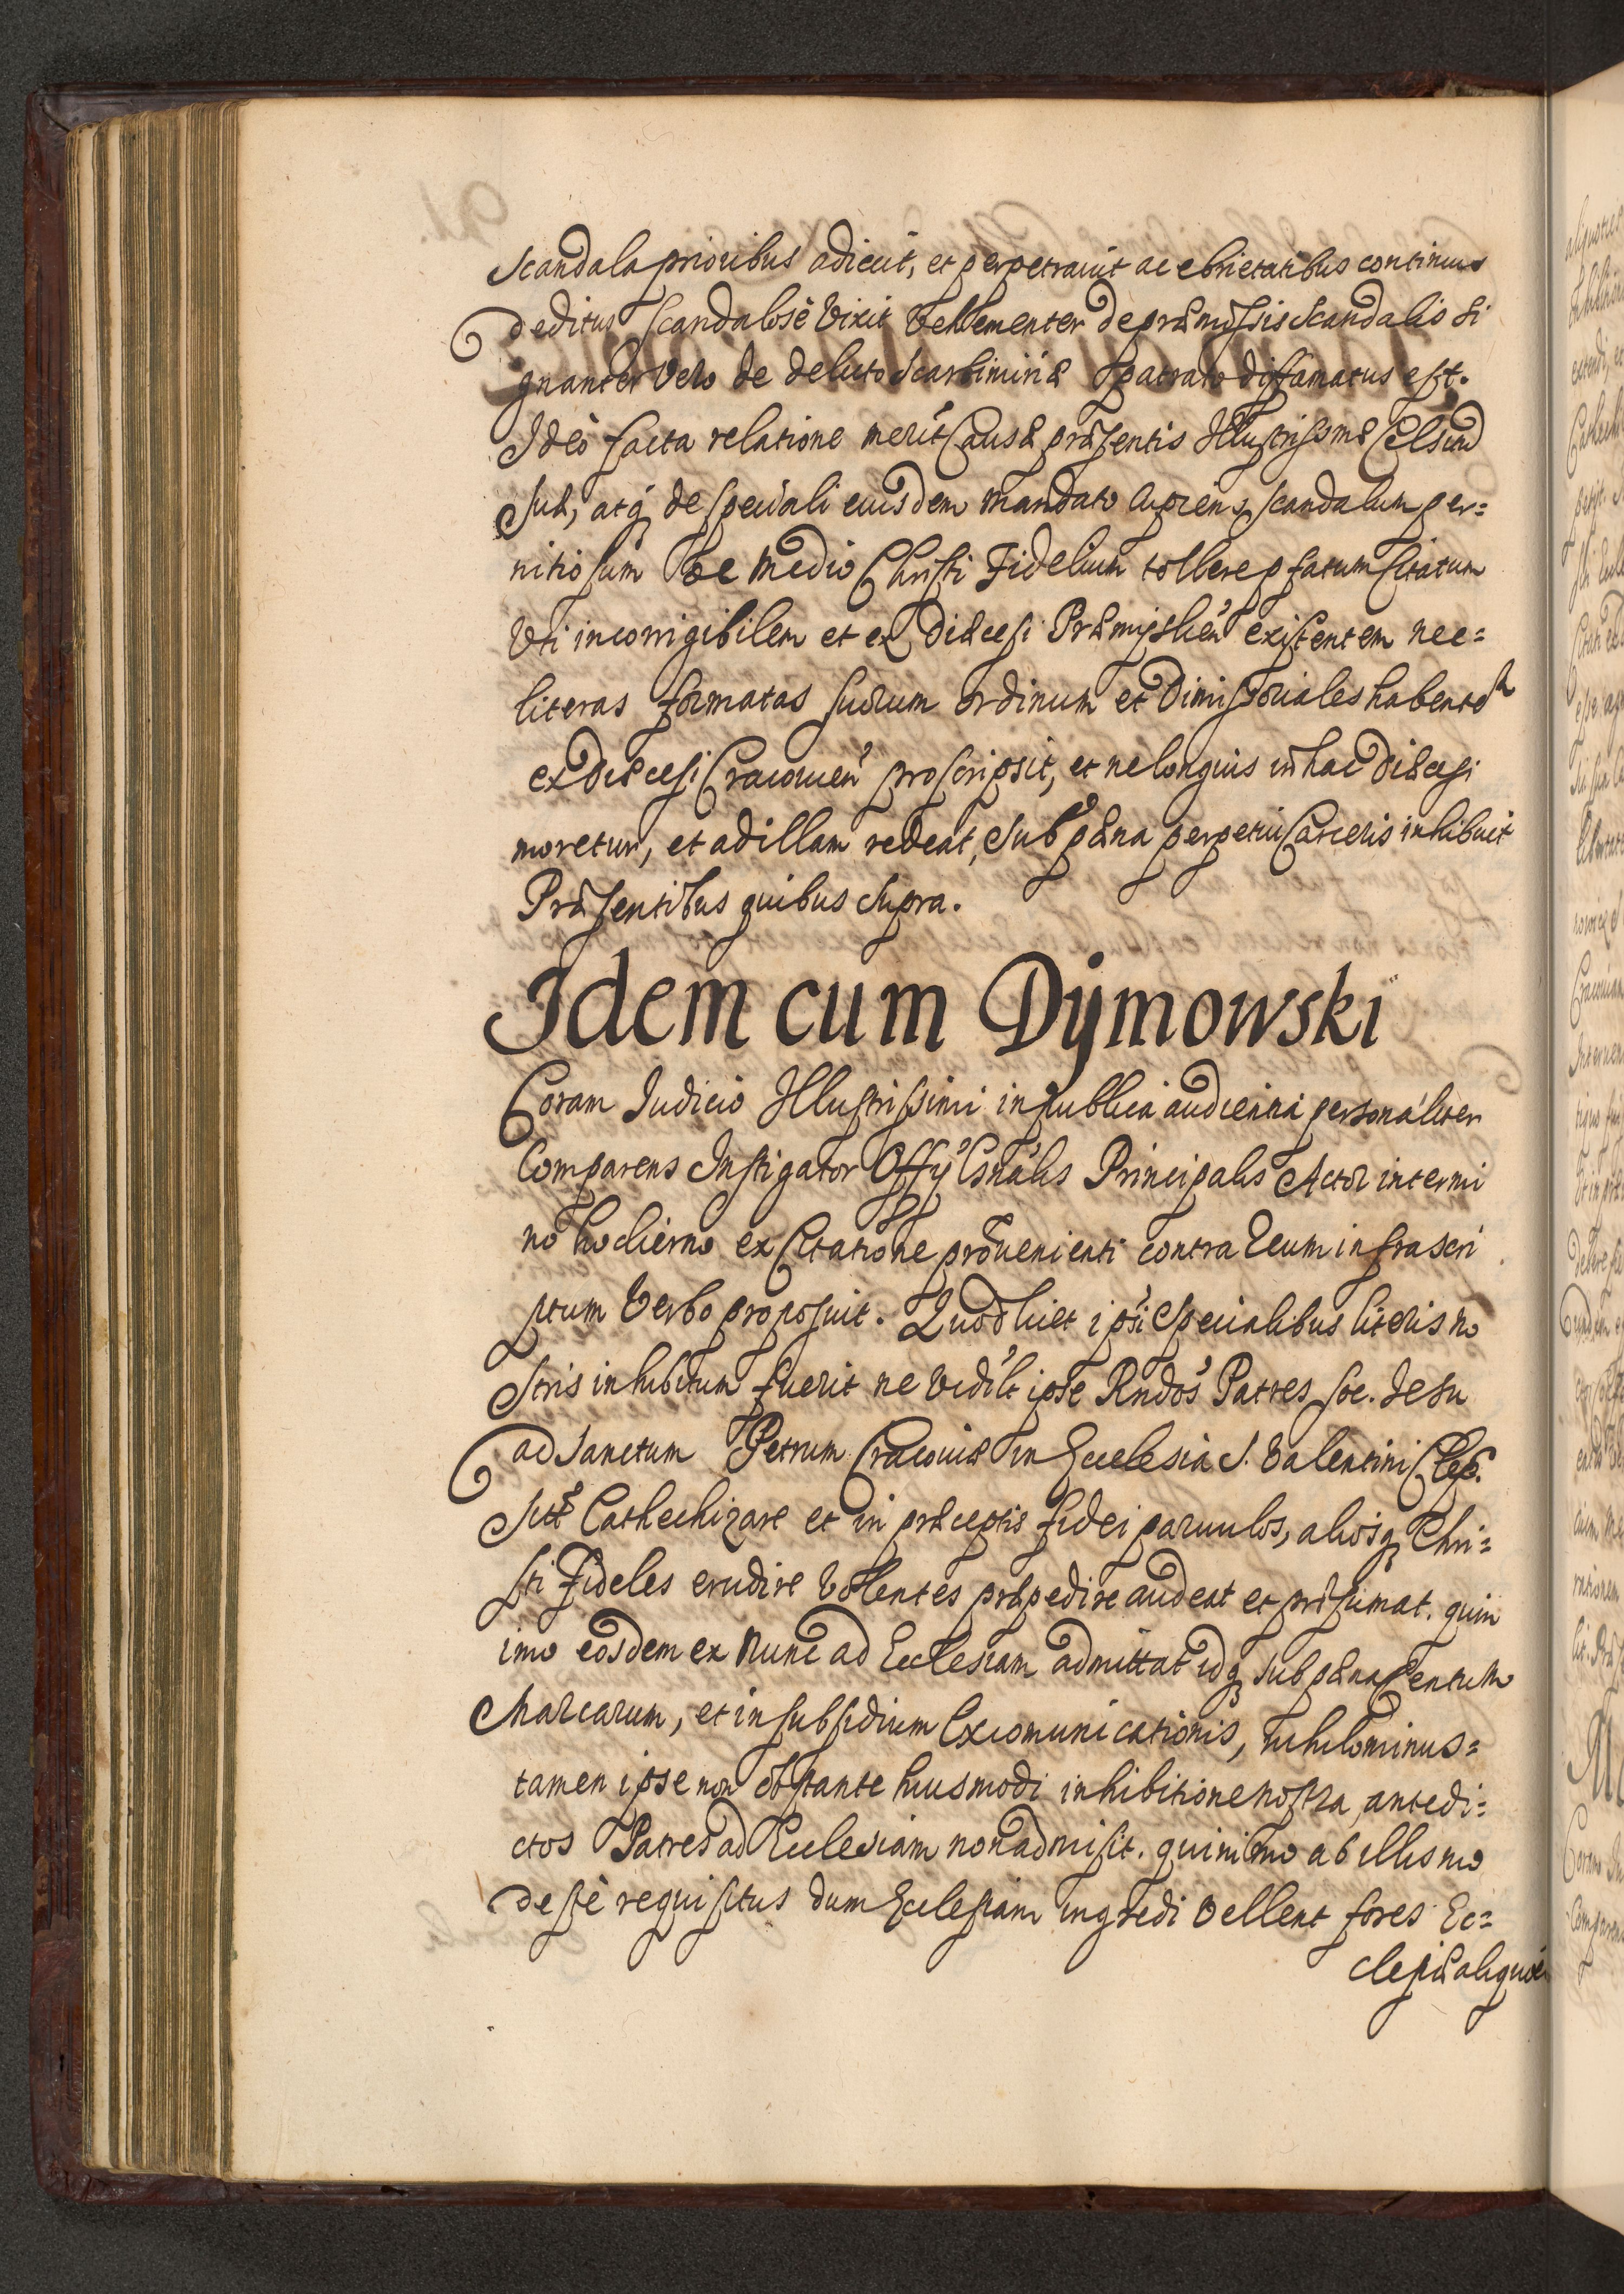 Scandala prioribus adiecit, et perpetrauit ac ebrietatibus continuo
deditus scandalosè vixit vehementer de præmissis scandalis si
gnanter vero de delicto Scarbimiriæ patrato diffamatus est.
Ideò facta relatione meriti Causæ præsentis Illustrissimæ Celsitud
suæ, atq de speciali eiusdem mandato cupiens scandalum per=
nitiosum de medio Christi Fidelium tollere pfatum Citatum
Uti incorrigibilem et ex Diæcesi Præmyslien existentem nec=
literas formatas suorum ordinum et Dimissoriales habente
ex Diæcesi Cracouien proscripsit, et ne longius in hac Diæcesi
moretur, et ad illam redeat, sub pæna perpetui Carceris inhibuit
Præsentibus quibus supra.
Idem cum Dÿmowski
Coram Iudicio Illustrissimi in publica audientia personaliter
Comparens Instigator Offÿ Csnalis Principalis Actor in termi
no hodierno ex Citatione proueniente contra Eeum infrascri
ptum Verbo proposuit. Quod licet ipsi specialibus literis no
stris inhibitum fuerit ne ipse Rndos Patres Soc. Iesu
ad Sanctum Petrum Cracouiæ in Ecclesia S. Valentini Clep.
Cathechizare et in præceptis fidei paruulos, aliosq Chri=
sti Fideles erudire Volentes præpedire audeat et præsumat. quin
imo eosdem ex nunc ad Ecclesiam admittat idq sub pæna Centum
Marcarum, et in subsidium Excomunicationis, nihilominus=
tamen ipse non obstante huiusmodi inhibitione nostra, antedi=
ctos Patres ad Ecclesiam non admisit. quinimo ab illis mo
destè requisitus dum Ecclesiam ingredi vellent fores Ec=
clesiæ aliquot